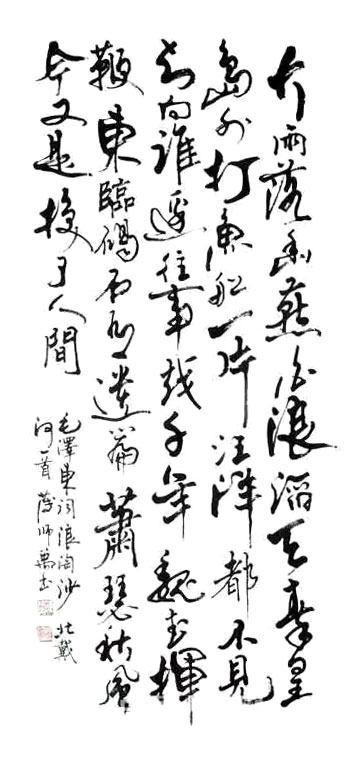 大雨落幽燕白浪滔天秦皇
島外打魚船一片汪洋都不見
知向誰邊往事越千年魏武揮
鞭東臨碣石有遺篇蕭瑟秋風
今又是換了人間
毛澤東詞浪淘沙北戴
河一首 師書